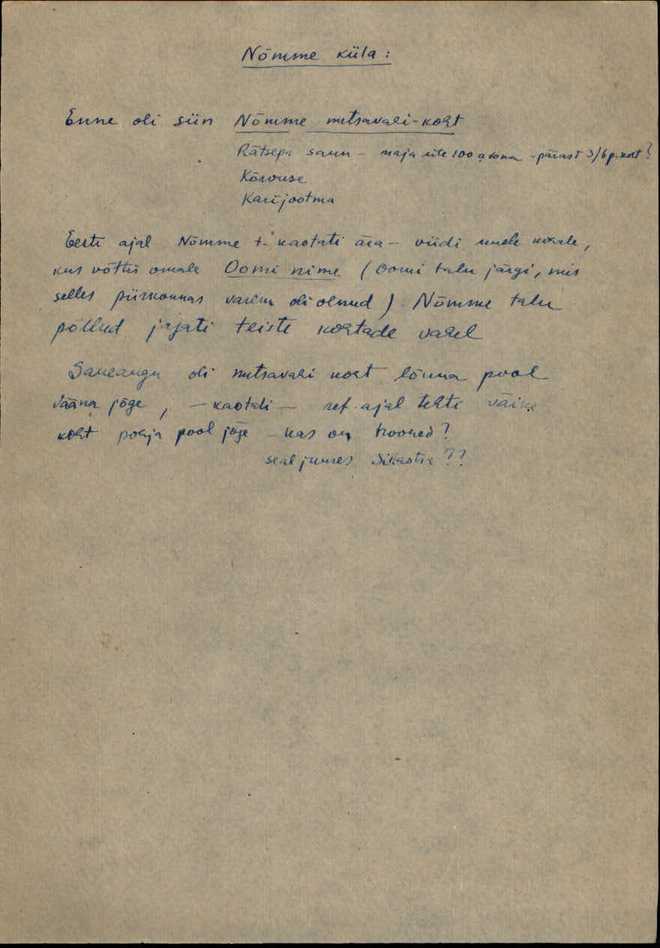 Nõmme küla:
Enne oli siin Nõmme metsavahi-koht
Rätsepa saun - maja üle 100 a vana - pärast 3/6 p. koht?
Kõrvuse
Karijootma
Eesti ajal Nõmme t. kaotati ära - viidi uuele kohale,
kus võttis omale Oomi nime (Oomi talu järgi, mis
selles piirkonnas varem oli olnud). Nõmme talu
põllud jajati teiste kohtade vahel
oli metsavahi koht lõuna pool
Vääna jõge, - kaotati - ref. ajal tehti väike
koht põhja pool jõge - kas on hooned?
sealjuures ??